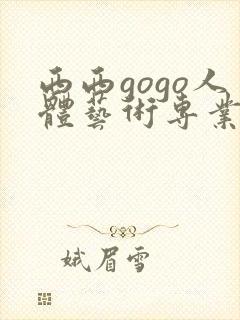 西西gogo人
體藝術專業
娥眉雪